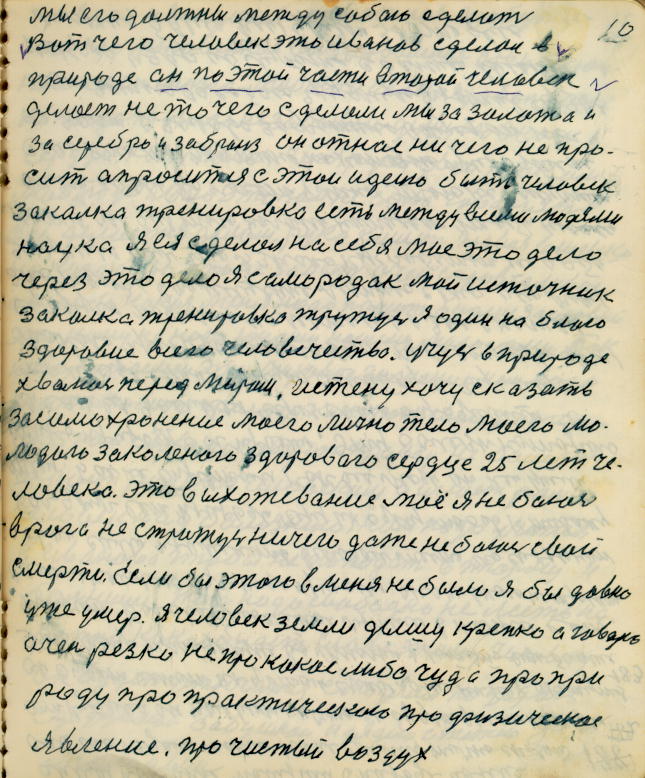 10
мы его должны между собою сделат
Вот чего человек это иванов сделал в
природе он по этой части второй человек
делает не то чего сделали мы за золото и
за серебро и за бранз он от нас ни чего не про-
сит а просится с этои идеею быть человек
закалка тренировка есть между всеми людями
наука я ея сделал на себя мое это дело
через это дело я самородак мой источник
закалка тренировка тружусь я один на благо
здоровие всего человечества. учусь в природе
хвалюсь перед миром, истену хочу сказать
за само хронение моего лично тело моего мо-
лодого закаленого здорового сердце 25 лет че-
ловека. это выхожевание моё я не боюсь
врога не стражусь ничего даже не боюсь свой
смерти. Если бы этого в меня не было я бы довно
уже умер. я человек земли дышу крепко а говарю
очен резко не про какое либо чуда про при
роду про практическое про физическое
явление, про чистый воздух